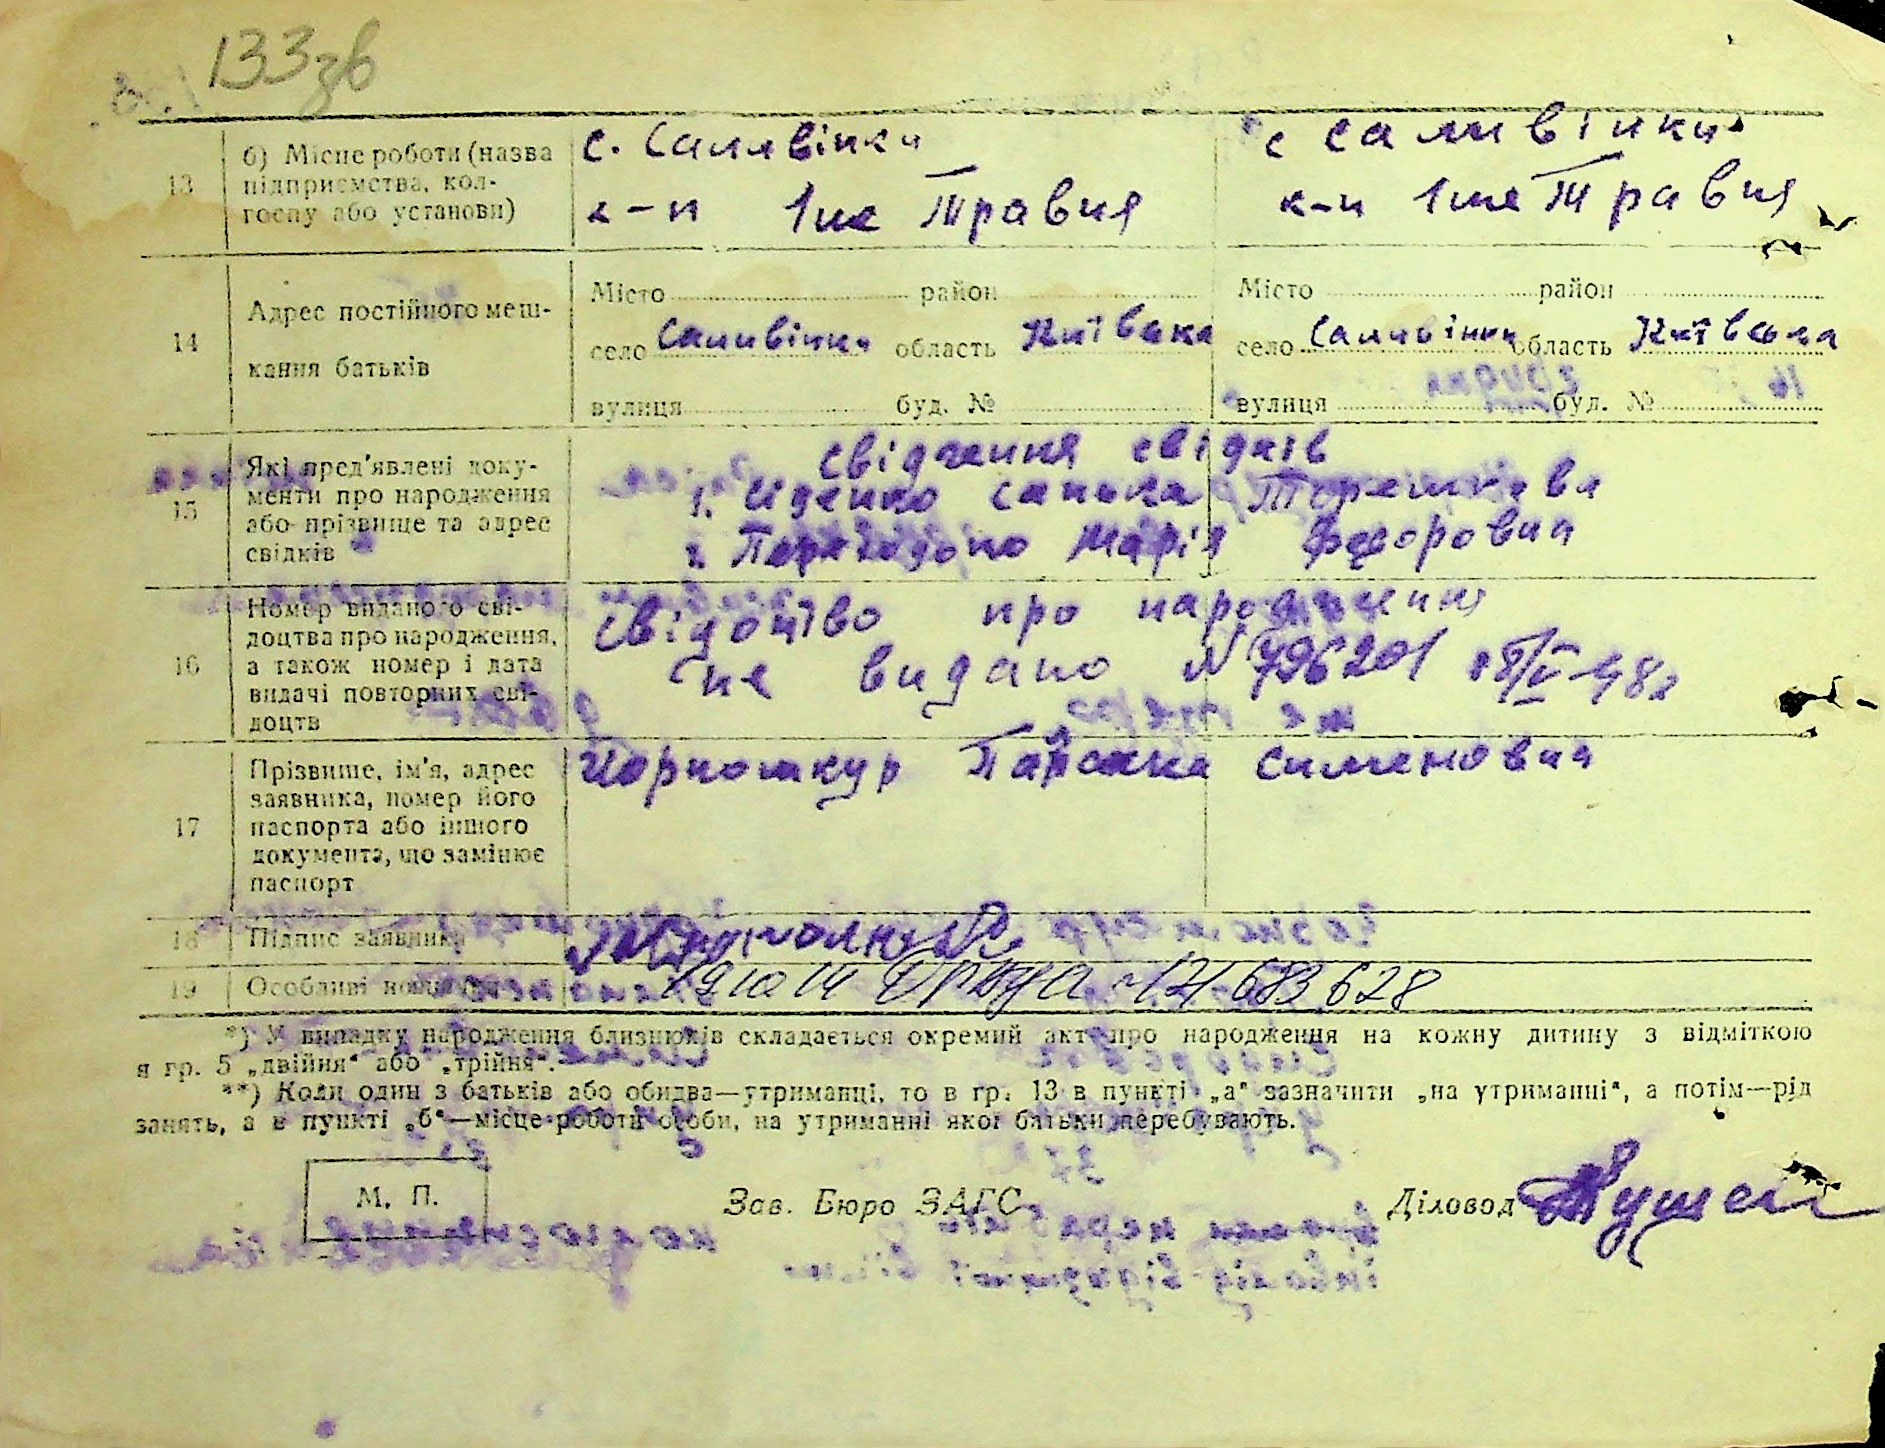 133зв
13 б) Місце роботи (назва підприємства, колгоспу або установи)
с. Саливінки
с Саливінки
к-п 1ше Травня
к-п 1ше Травня
14 Адрес постійного мешкання батьків
Місто район
Місто район
село Саливінки область Київська
село Саливінки область Київська
вулиця буд. №
вулиця буд. №
15 Які пред'явлені документи про народження або прізвище та адрес свідків
Свідчення свідків
1. Санька
2. Марія Федоровна
16 Номер виданого свідоцтва про народження, а також номер і дата видачі повторних свідоцтв
Свідоцтво про народження
не видано N 796201 18/V-48г
17 Прізвище, ім'я, адрес заявника, номер його паспорта або іншого документа, що замінює паспорт
Чорношкур Параска Сименовна
18 Підпис заявника
19 Особливі
683628
*) У випадку народження близнюків складається окремий акт про народження на кожну дитину з відміткою
я гр. 5 „двійня“ або „трійня“.
**) Коли один з батьків або обидва—утриманці, то в гр. 13 в пункті „а“ зазначити „на утриманні“, а потім—рід
занять, а в пункті „б“—місце роботи особи, на утриманні якої батьки перебувають.
М. П.
Зав. Бюро ЗАГС
Діловод